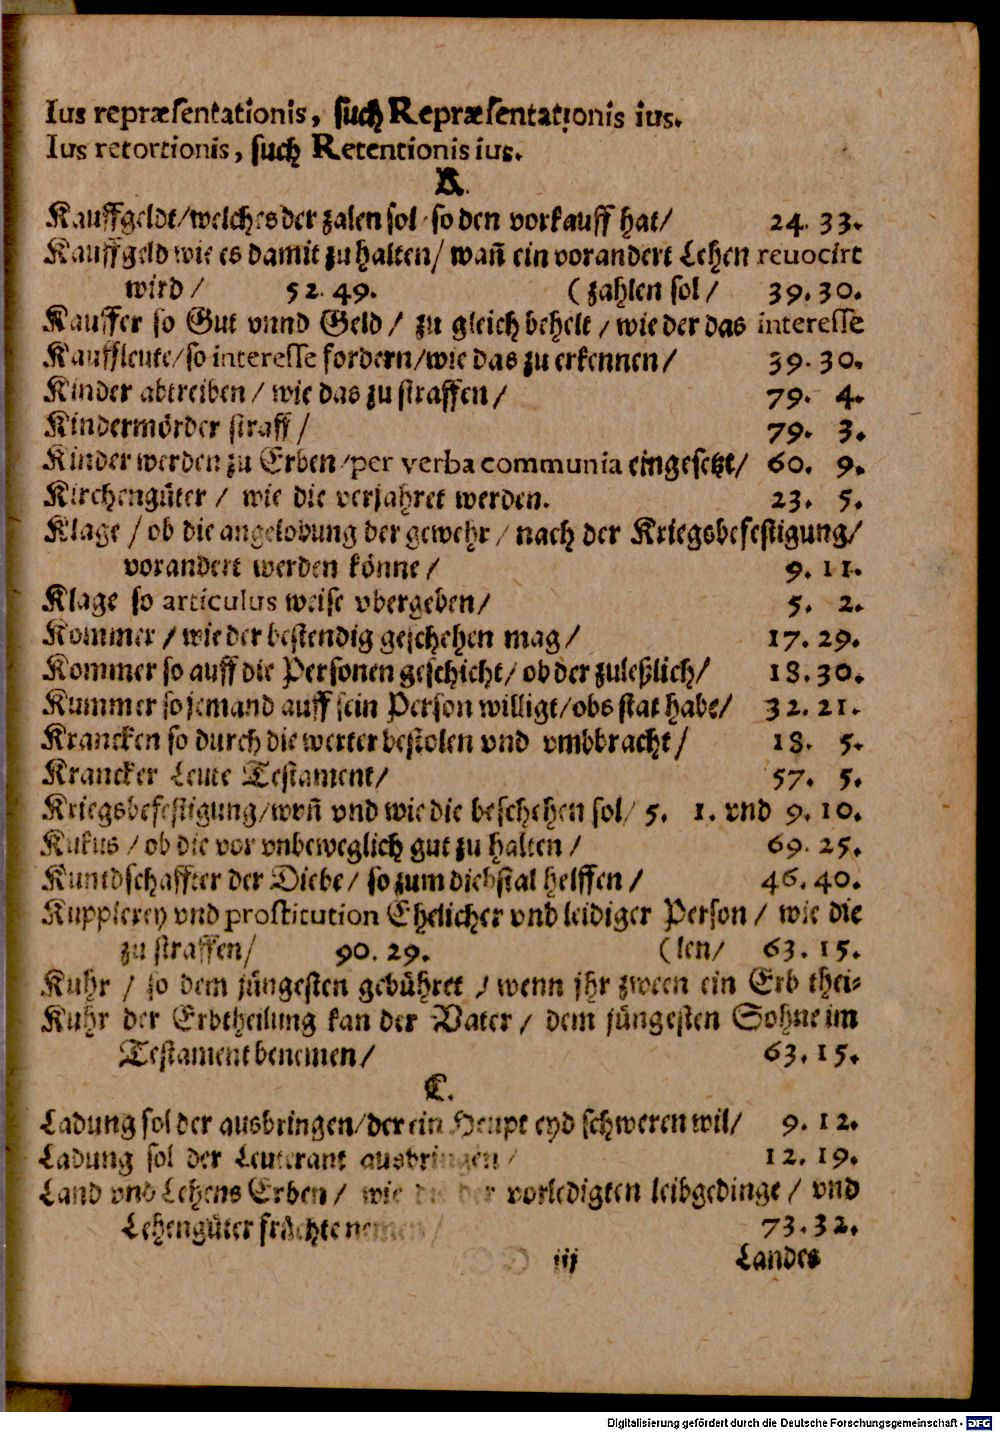 Ius repræsentationis, such Repræsentationis ius.
Ius retortionis, such Retentionis ius.
K.
Kauffgeldt/welches der zalen sol so den vorkauff hat/ 24. 33.
Kauffgeld wie es damit zu halten/ wañ ein vorandert Lehen reuocirt
wird/ 52. 49. (zahlen sol/ 39. 30.
Kauffer so Gut vnnd Geld/ zu gleich behelt/ wie der das interesse
Kauffleute/so interesse fordern/wie das zu erkennen/ 39. 30.
Kinder abtreiben/ wie das zu straffen/ 79. 4.
Kindermörder straff/ 79. 3.
Kinder werden zu Erben/per verba communia eingesetzt/ 60. 9.
Kirchengüter/ wie die verjahret werden. 23. 5.
Klage/ ob die angelobung der gewehr/ nach der Kriegsbefestigung/
vorandert werden könne/ 9. 11.
Klage so articulus weise vbergeben/ 5. 2.
Kommer/ wie der bestendig geschehen mag/ 17. 29.
Kommer so auff die Personen geschicht/ ob der zuleßlich/ 18. 30.
Kummer so jemand auff sein Person willigt/obs stat habe/ 32. 21.
Krancken so durch die werter bestolen vnd vmbbracht/ 18. 5.
Krancker Leute Testament/ 57. 5.
Kriegsbefestigung/wañ vnd wie die beschehen sol/ 5. 1. vnd 9. 10.
Kukus/ ob die vor vnbeweglich gut zu halten/ 69. 25.
Kuntdschaffter der Diebe/ so zum diebstal helffen/ 46. 40.
Kupplerey vnd prostitution Ehelicher vnd leidiger Person/ wie die
zu straffen/ 90. 29. (len/ 63. 15.
Kuhr/ so dem jüngesten gebühret/ wenn jhr zween ein Erb thei-
Kuhr der Erbtheilung kan der Vater/ dem jüngesten Sohne im
Testament benemen/ 63. 15.
L.
Ladung sol der ausbringen/der ein Heupt eyd schweren wil/ 9. 12.
Ladung sol der Leuterant ausbringen/ 12. 19.
Land vnd Lehens Erben/ wie die der vorledigten leibgedinge/ vnd
Lehengüter früchte nemen/ 73. 32.
iij Landes
Digitalisierung gefördert durch die Deutsche Forschungsgemeinschaft - DFG